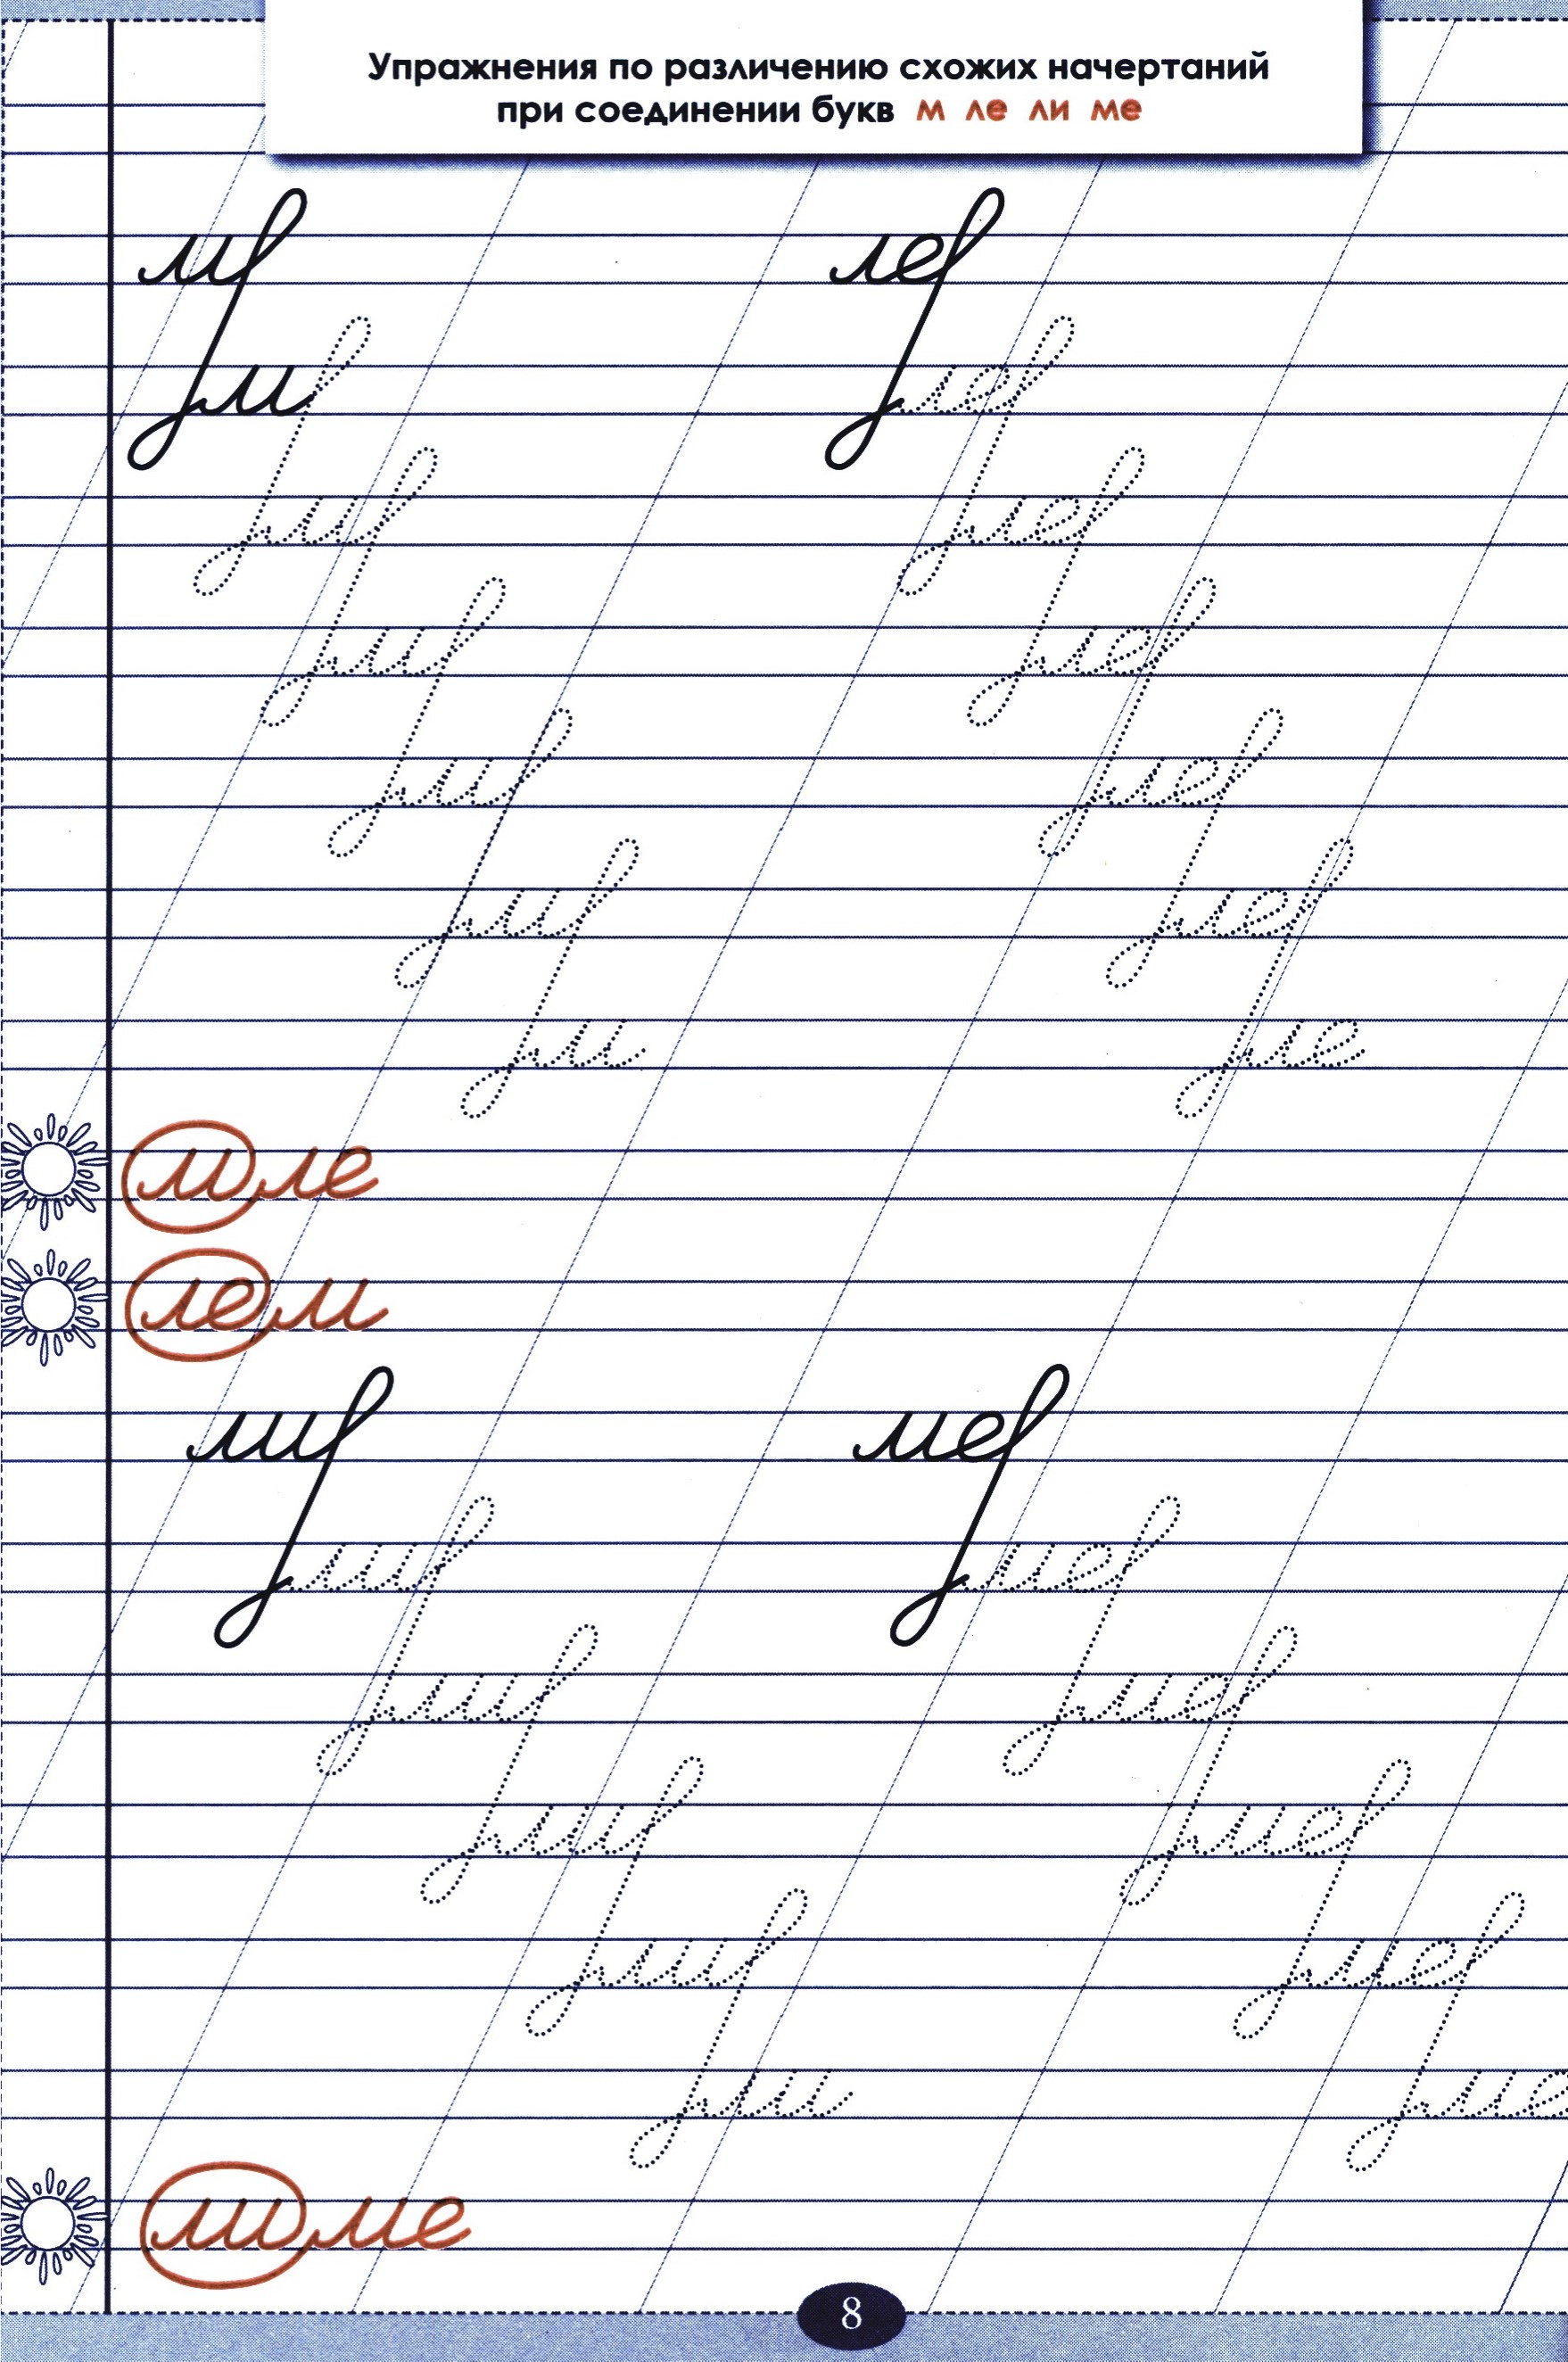 Упражнения по различению схожих начертаний
при соединении букв м ле ли ме
м ле
м ле
м ле
м ле
м ле
м ле
м ле
м ле
ле м
ли ме
ли ме
ли ме
ли ме
ли ме
ли ме
ли ме
8